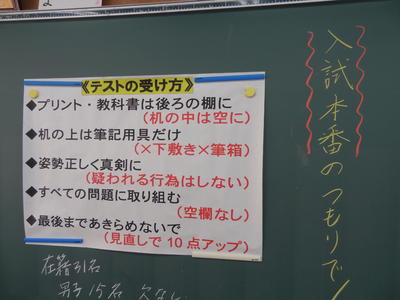 《テストの受け方》
◆プリント・教科書は後ろの棚に
(机の中は空に)
◆机の上は筆記用具だけ
(×下敷き×筆箱)
◆姿勢正しく真剣に
(疑われる行為はしない)
◆すべての問題に取り組む
(空欄なし)
◆最後まであきらめないで
(見直しで10点アップ)
入試本番のつもりで!
男子15名 欠なし